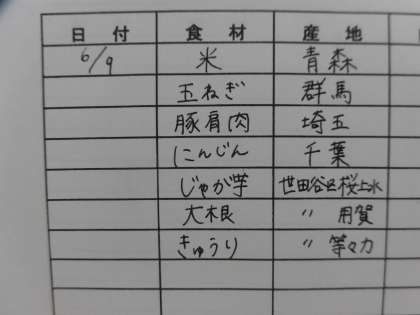 日付 食材 産地
6/9 米 青森
玉ねぎ 群馬
豚肩肉 埼玉
にんじん 千葉
じゃが芋 世田谷区桜上水
大根 〃 用賀
きゅうり 〃 等々力